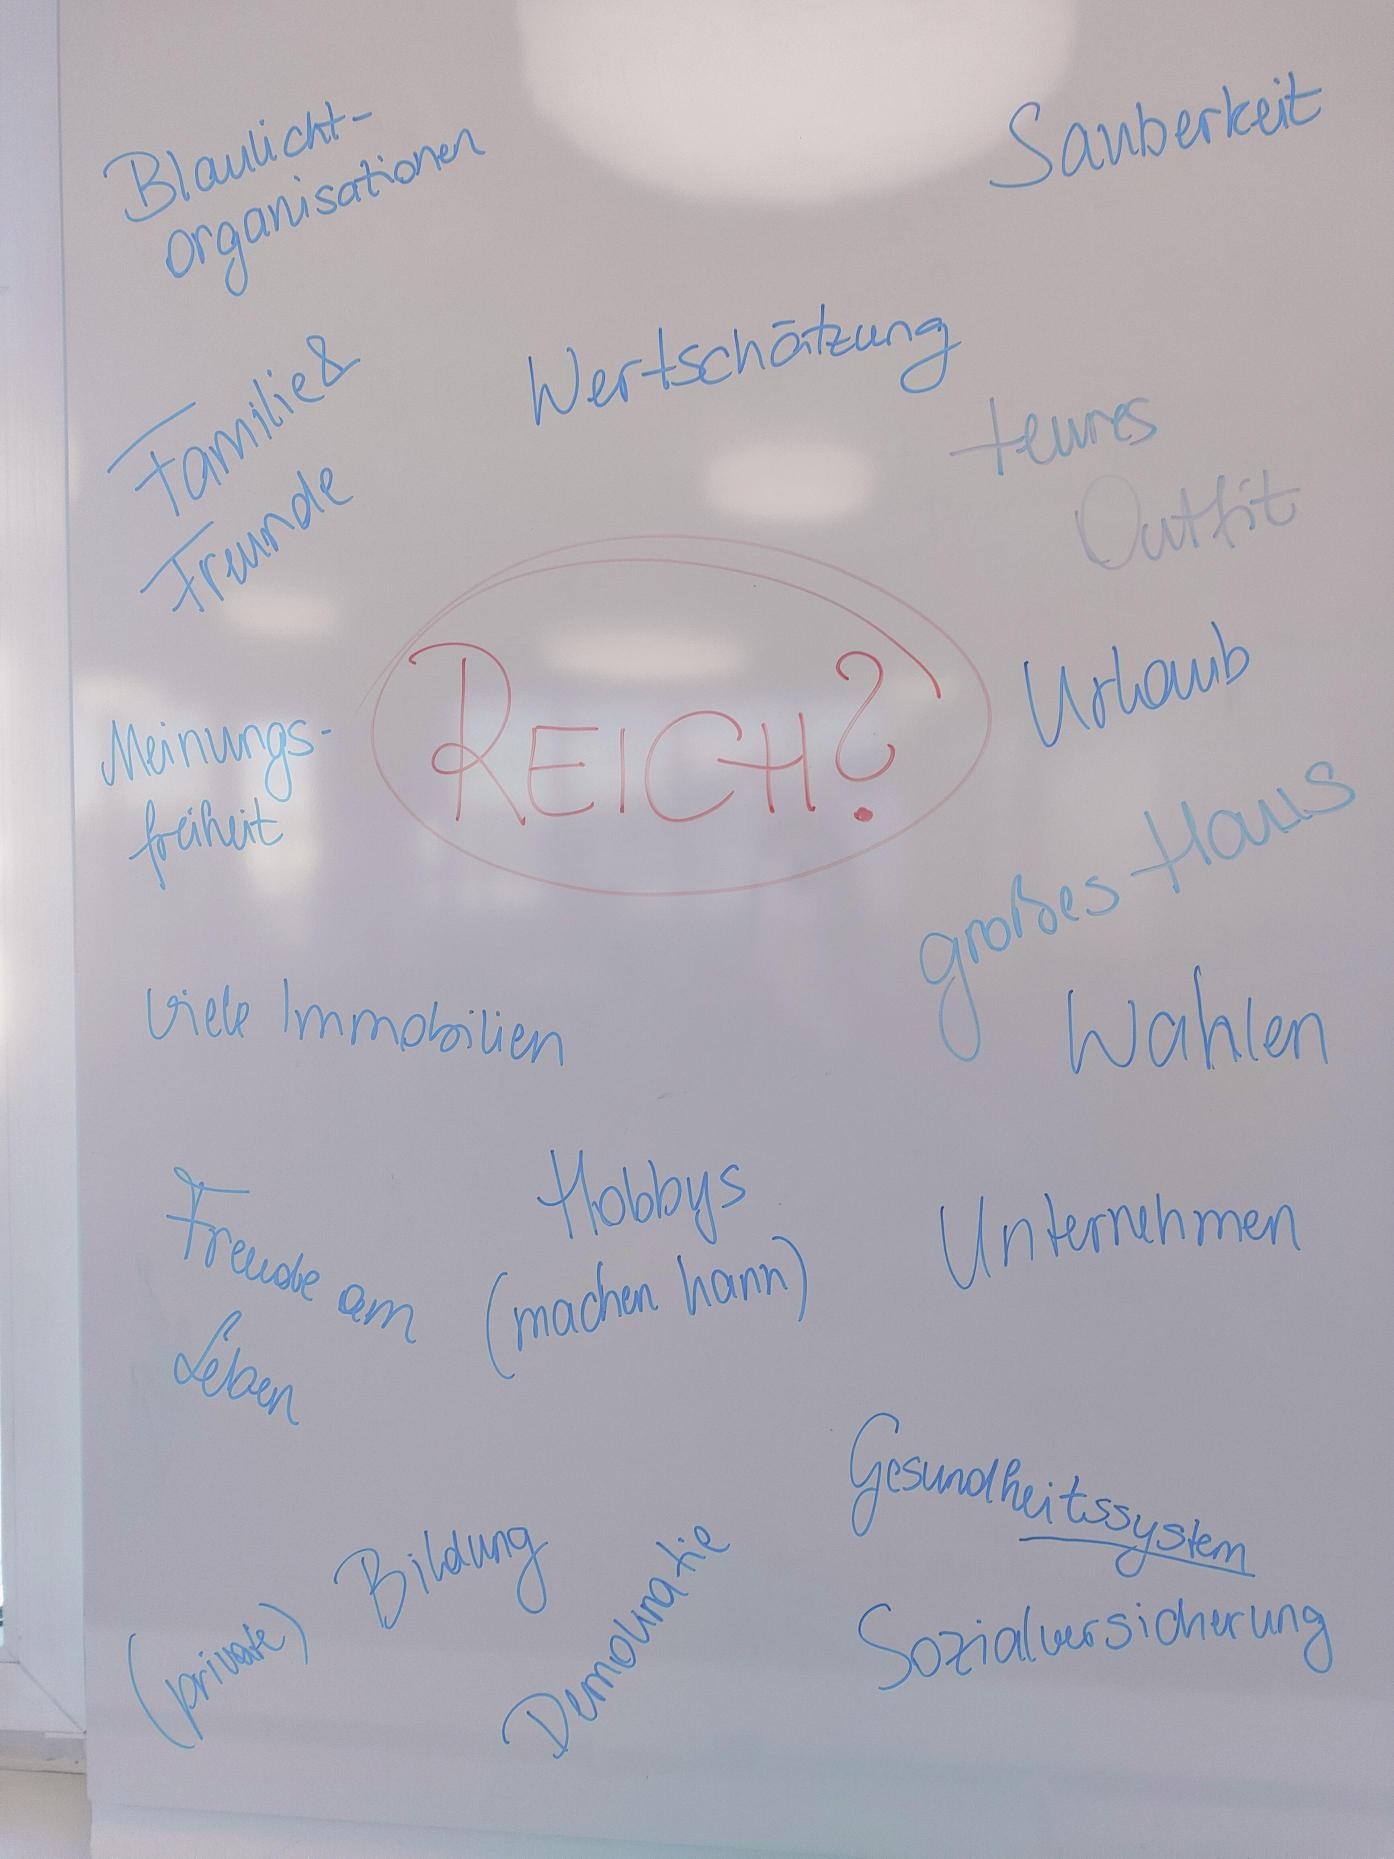 Blaulicht-
organisationen
Sauberkeit
Familie &
Freunde
Wertschätzung
teures
Outfit
REICH?
Urlaub
Meinungs-
freiheit
großes Haus
Viele Immobilien
Wahlen
Freude am
Leben
Hobbys
(machen kann)
Unternehmen
Gesundheitssystem
(private) Bildung
Demokratie
Sozialversicherung